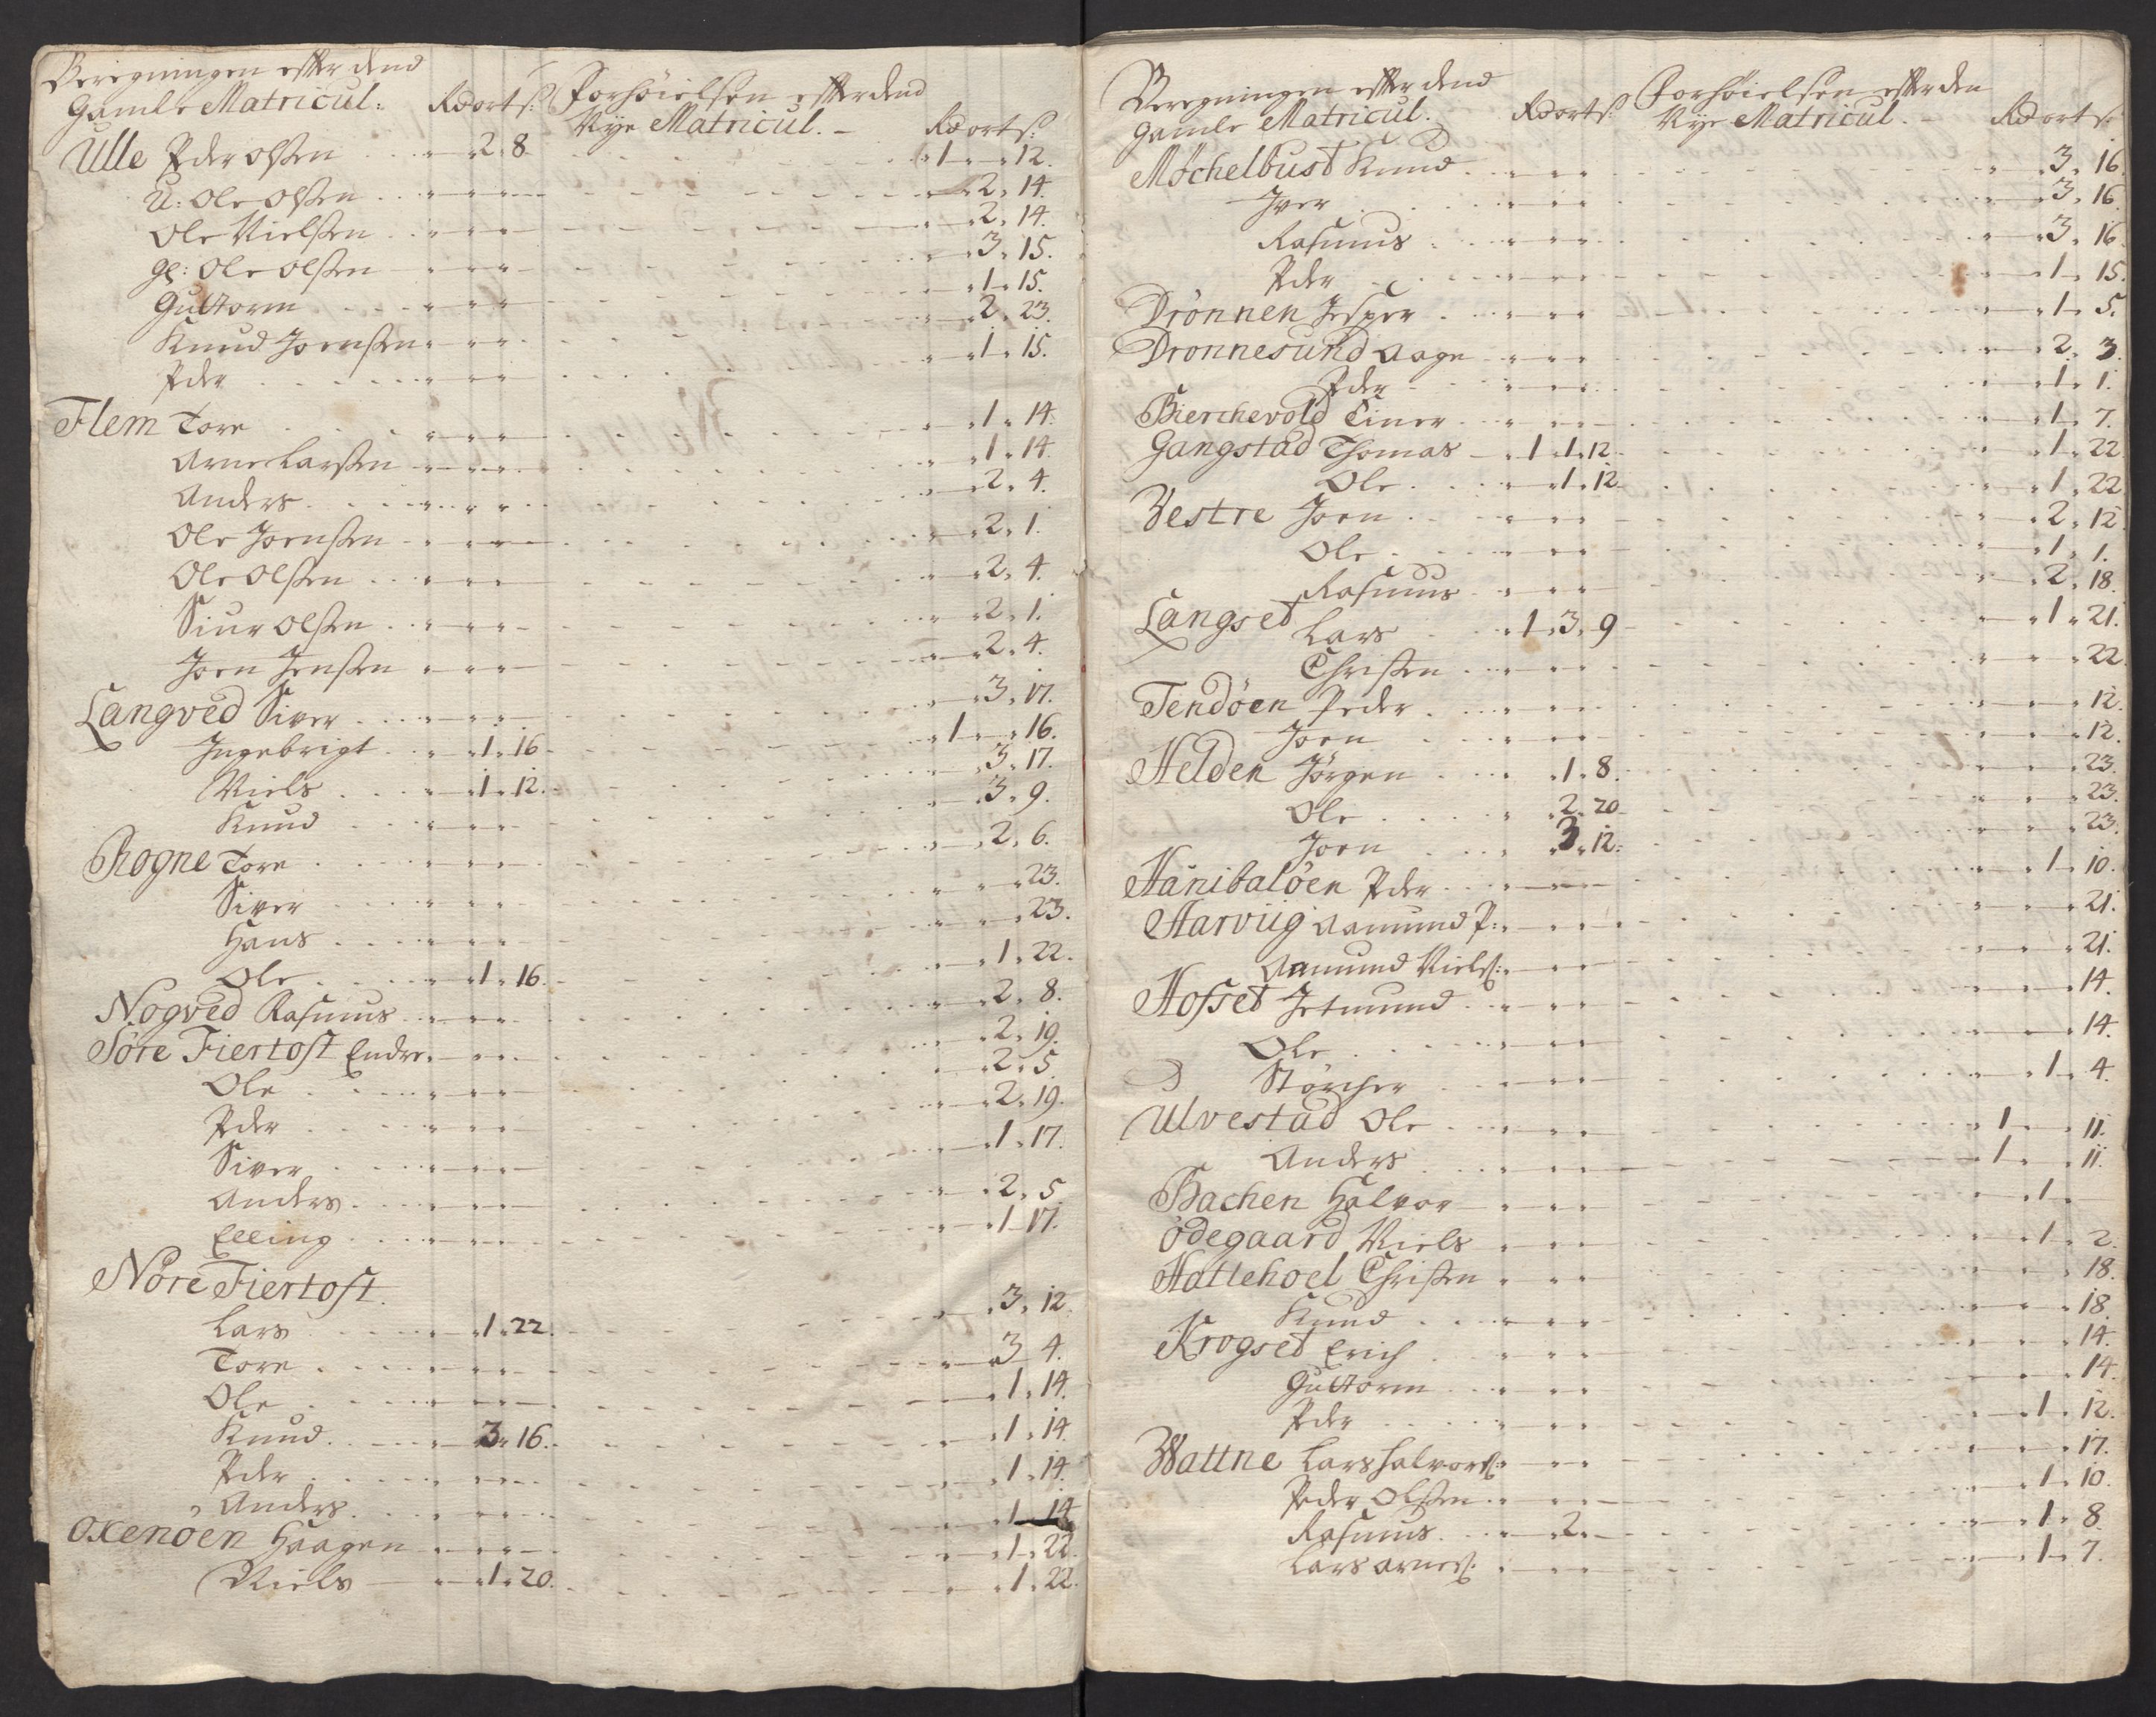 Beregningen effter dend
Gamle Matricul: Rd ort ß: Forhöielsen effter dend
Nye Matricul. - Rd ort ß:
Ulle Peder Olßen 2 8 1 " 12.
U: Ole Olßen 2. 14.
Ole Nielßen 2. 14.
gl: Ole Olßen 3. 15.
Guttorm 1. 15.
Knud Joenßen 2. 23.
Peder 1. 15.
Flem Tore 1. 14.
Arne Larßen 1. 14.
Anders 2. 4.
Ole Joenßen 2. 1.
Ole Olßen 2. 4.
Siur Olßen 2. 1.
Joen Jenßen 2. 4.
Langved Siver 3. 17.
Ingebrigt 1. 16 1 " 16.
Niels 1. 12. 3. 17.
Knud 3. 9.
Rogne Tore 2. 6.
Siver 23.
Hans 23.
Ole 1. 16. 1. 22.
Nogved Rasmus 2. 8.
Söre Fiertoft Endre 2. 19.
Ole 2. 5.
Peder 2. 19.
Siver 1. 17.
Anders 2. 5.
Elling 1. 17.
Nore Fiertoft.
Lars 1. 22. 3. 12.
Tore 3 4.
Ole 1. 14.
Knud 3. 16. 1. 14.
Peder 1. 14.
Anders 1 14
Oxenöen Haagen 1. 22.
Niels 1. 20. 1. 22.
Beregningen effter dend
Gamle Matricul. Rd ort ß: Forhöielsen effter den
Nye Matricul. - Rd ort ß:
Möchelbust Knud 3. 16.
Iver 3. 16.
Rasmus 3. 16.
Peder 1. 15.
Drönnen Jesper 1. 5.
Dronnesund Aage 2. 3.
Peder 1. 1.
Bierchevold Einer 1. 7.
Gangstad Thomas 1 1. 12. 1. 22
Ole 1. 12. 1. 22
Vestre Joen 2. 12
Ole 1. 1.
Rasmus 2. 18.
Langset Lars 1. 3. 9 1. 21.
Christen 22.
Tendöen Peder 12.
Joen 12.
Helden Jörgen 1. 8. 23.
Ole 2. 20 23.
Joen 3 12. 23.
Hanibalöen Peder 1. 10.
Harviig Aamund P: 21.
Aamund Nielß: 21.
Hofset Jetmund 14.
Ole 14.
Störcher 1. 4.
Ulvestad Ole 1 " 11.
Anders 1 " 11.
Bachen Halvor 1.
Ödegaard Niels 1. 2.
Hattehoel Christen 18.
Knud 18.
Krogset Erich 14.
Guttorm 14.
Peder 1. 12.
Wattne Lars Halvorß: 17.
Peder Olßen 1. 10.
Rasmus 2. 1. 8.
Lars Arneß: 1. 7.